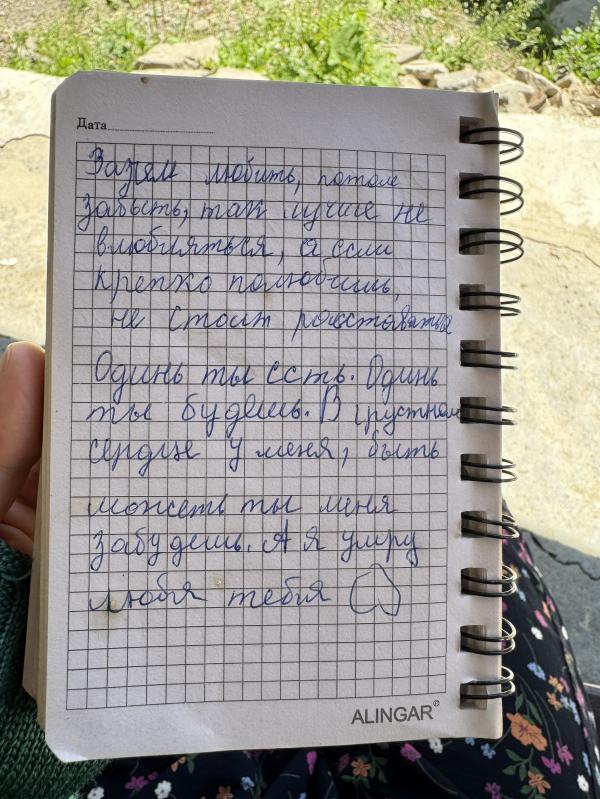 Дата
Зачем любить, потом
забыть, так лучше не
влюбляться, а если
крепко полюбишь,
не стоит расставаться
Одинь ты есть. Одинь
ты будешь. В грустном
сердце у меня, быть
можеть ты меня
забудешь. А я умру
любя тебя
ALINGAR®